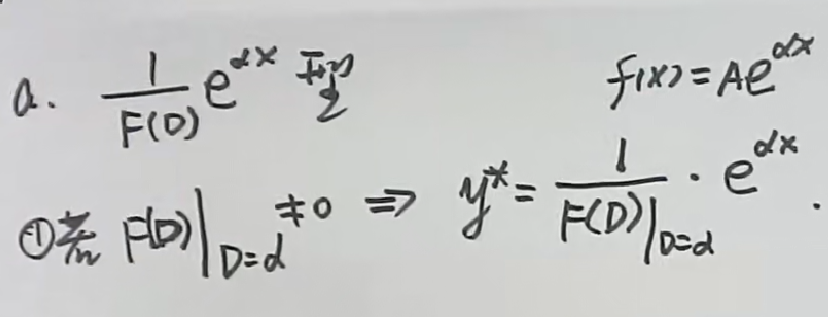 a. \frac{1}{F(D)} e^{αx} 型 f(x) = Ae^{αx}
①若 F(D)|_{D=α} ≠0 ⇒ y* = \frac{1}{F(D)|_{D=α}} · e^{αx} .